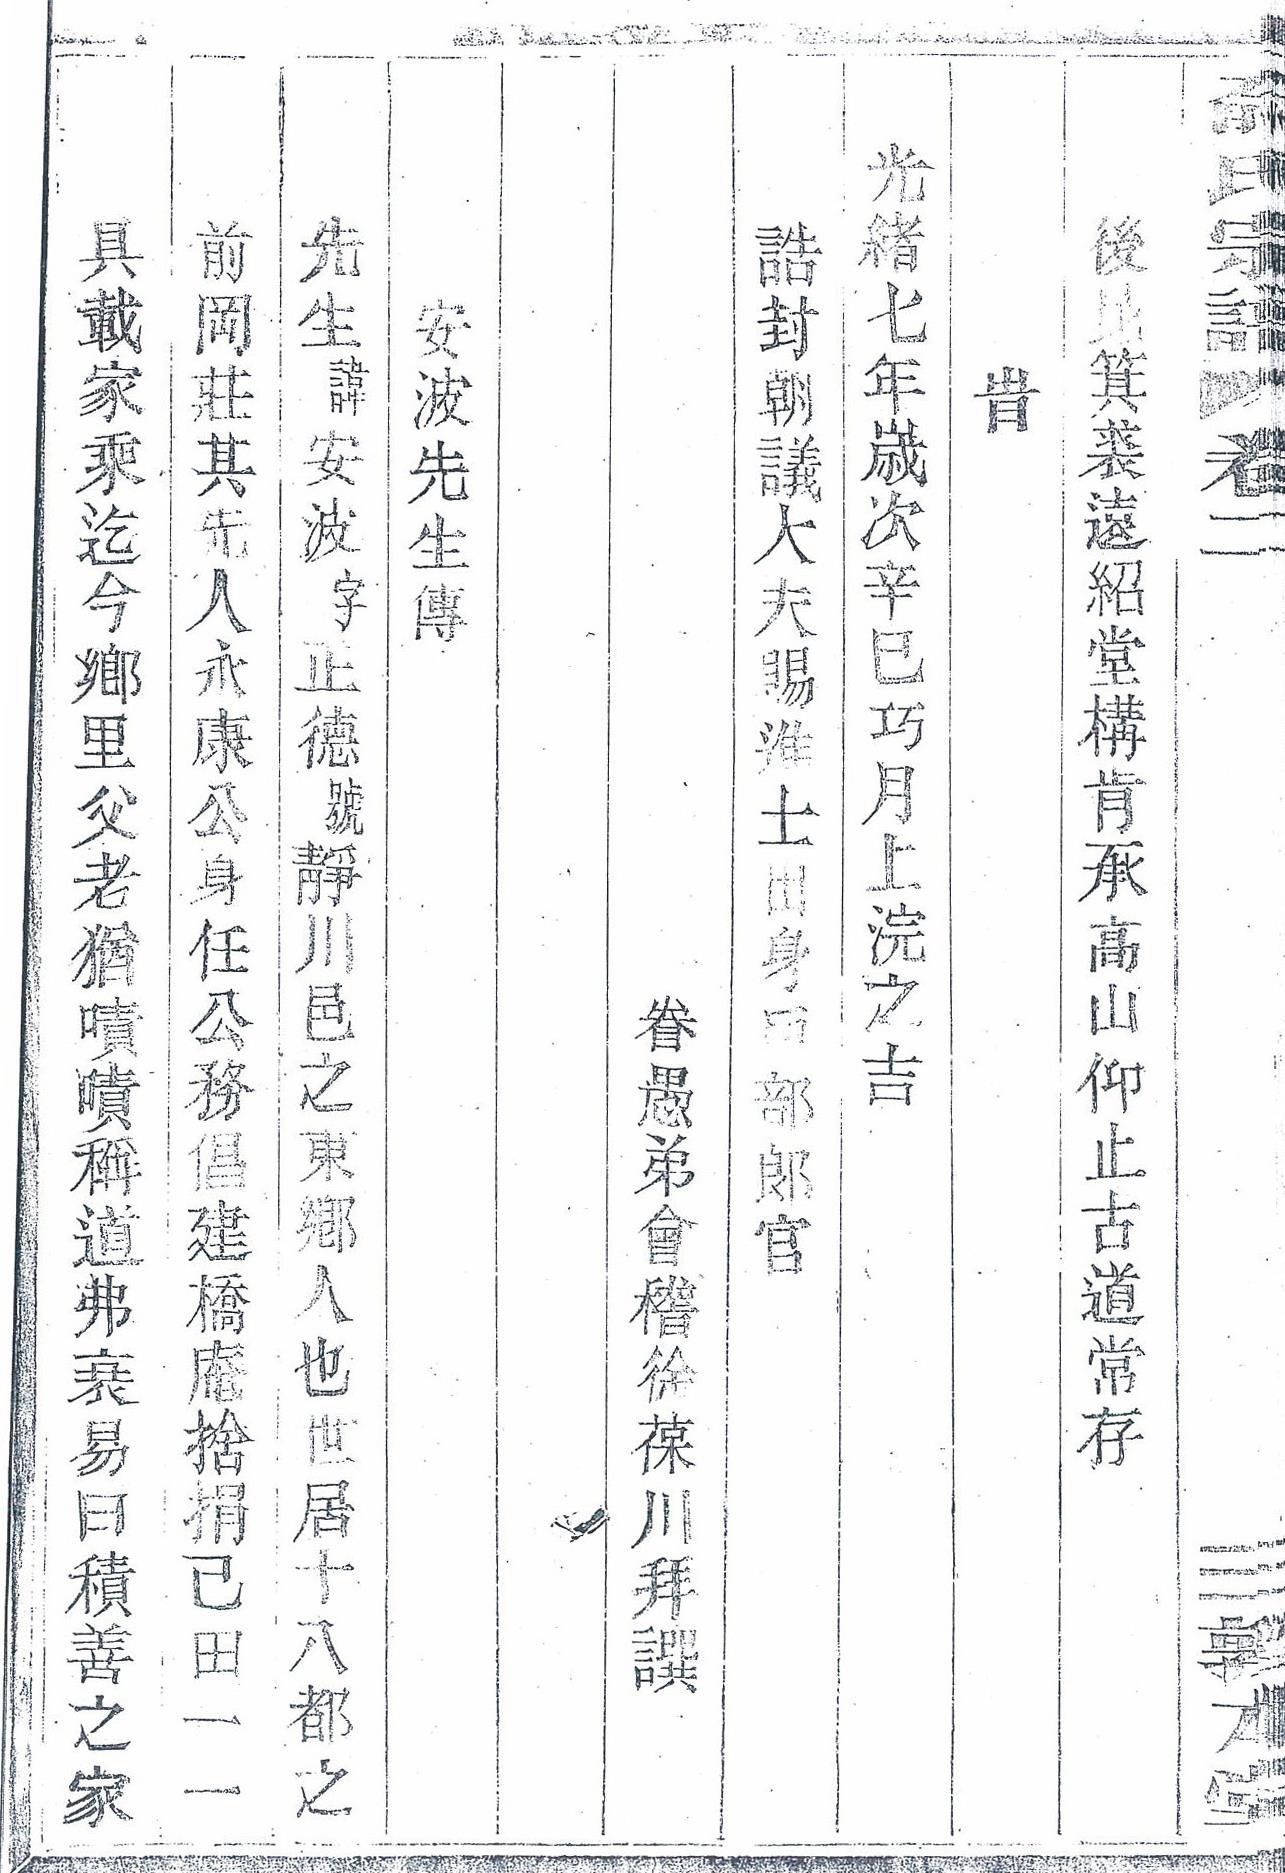 氏宗譜 卷二
後此箕裘遠紹堂構肯承高山仰止古道常存
旹
光緒七年歲次辛巳巧月上浣之吉
誥封朝議大夫賜進士出身 部郎官
眷愚弟會稽徐葆川拜譔
安波先生傳
先生諱安波字正德號靜川邑之東鄉人也世居十八都之
前岡莊其先人永康公身任公務倡建橋庵捨捐己田一一
具載家乘迄今鄉里父老猶嘖嘖稱道弗衰易曰積善之家